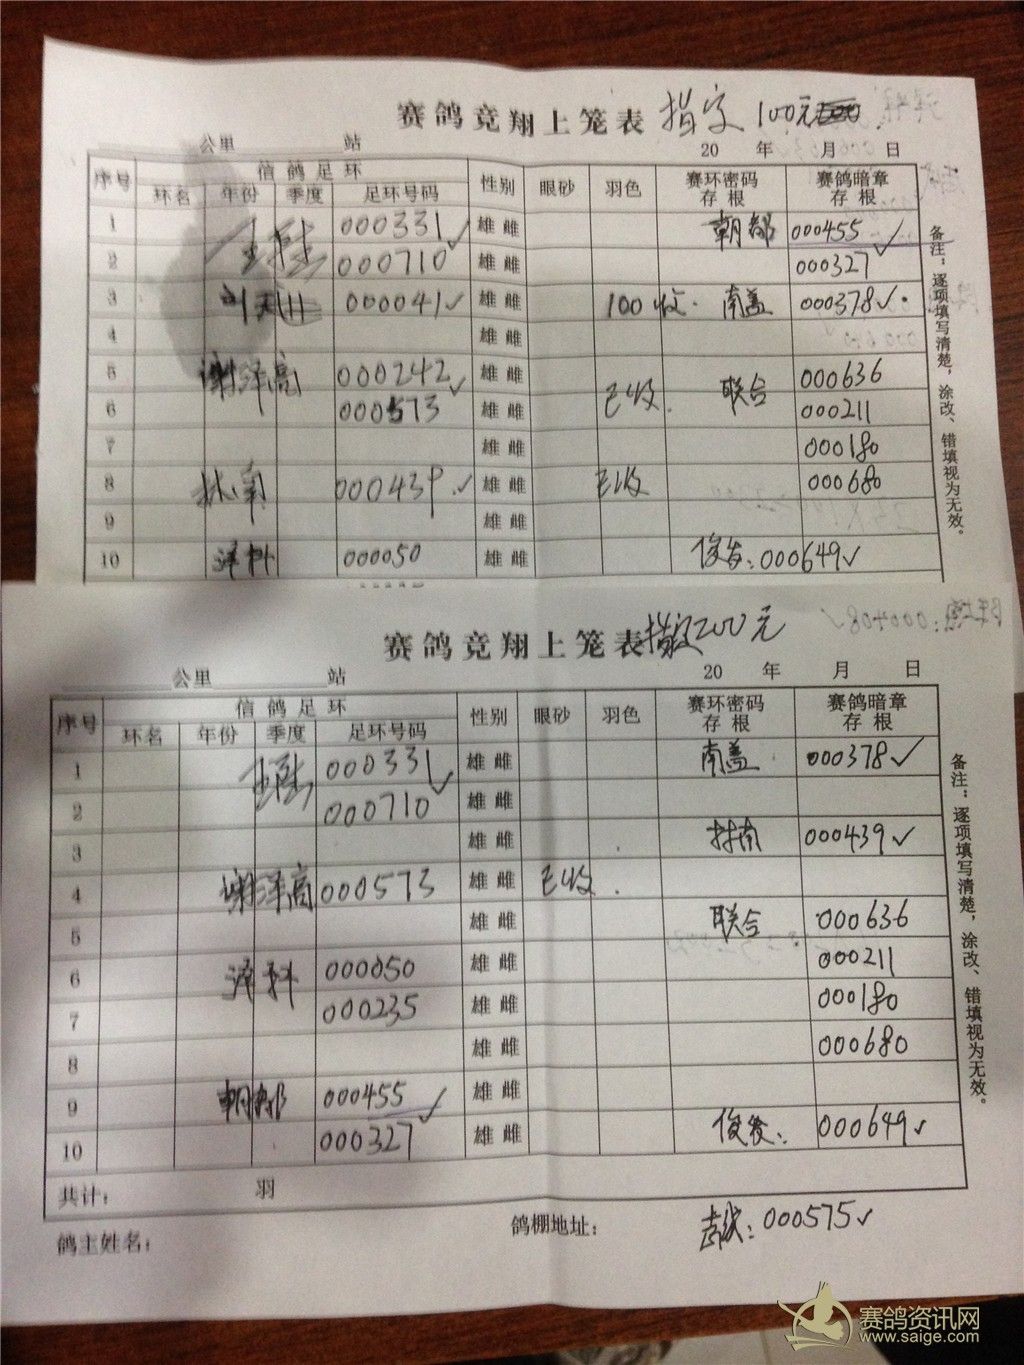 赛鸽竞翔上笼表 指定 100元
公里 站 20 年 月 日
序号 信鸽足环 性别 眼砂 羽色 赛环密码存根 赛鸽暗章存根
环名 年份 季度 足环号码
1 000331✓ 雄 雌 朝都 000455✓
2 000710 雄 雌 000327
3 000041✓ 雄 雌 100收. 南盖 000378✓.
4 雄 雌
5 谢泽高 000242✓ 雄 雌 000636
6 000573 雄 雌 已收. 联合 000211
7 雄 雌 000180
8 000439.✓ 雄 雌 已收 000680
9 雄 雌
10 泽科 000050 雄 雌 俊发:000649✓
备注:逐项填写清楚,涂改、错填视为无效。
赛鸽竞翔上笼表 指定200元
000408✓
公里 站 20 年 月 日
序号 信鸽足环 性别 眼砂 羽色 赛环密码存根 赛鸽暗章存根
环名 年份 季度 足环号码
1 000331✓ 雄 雌 南盖 000378✓
2 000710 雄 雌
3 雄 雌 林南 000439✓
4 谢泽高 000573 雄 雌 已收.
5 雄 雌 联合 000636
6 泽科 000050 雄 雌 000211
7 000235 雄 雌 000180
8 雄 雌 000680
9 朝都 000455✓ 雄 雌
10 000327 雄 雌 俊发: 000649✓
共计: 羽
备注:逐项填写清楚,涂改、错填视为无效。
鸽主姓名: 鸽棚地址: 000575✓
赛鸽资讯网
www.saige.com